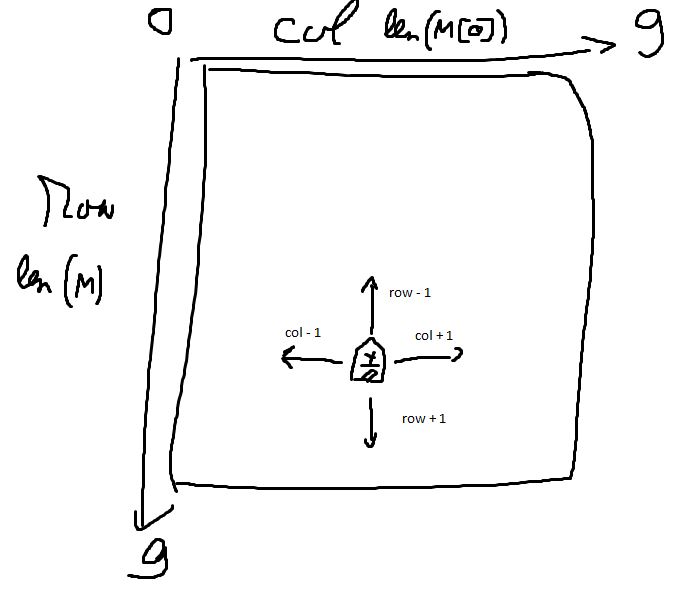 0 col len(M[0]) 9
Row
len(M)
row - 1
col - 1
col + 1
row + 1
9